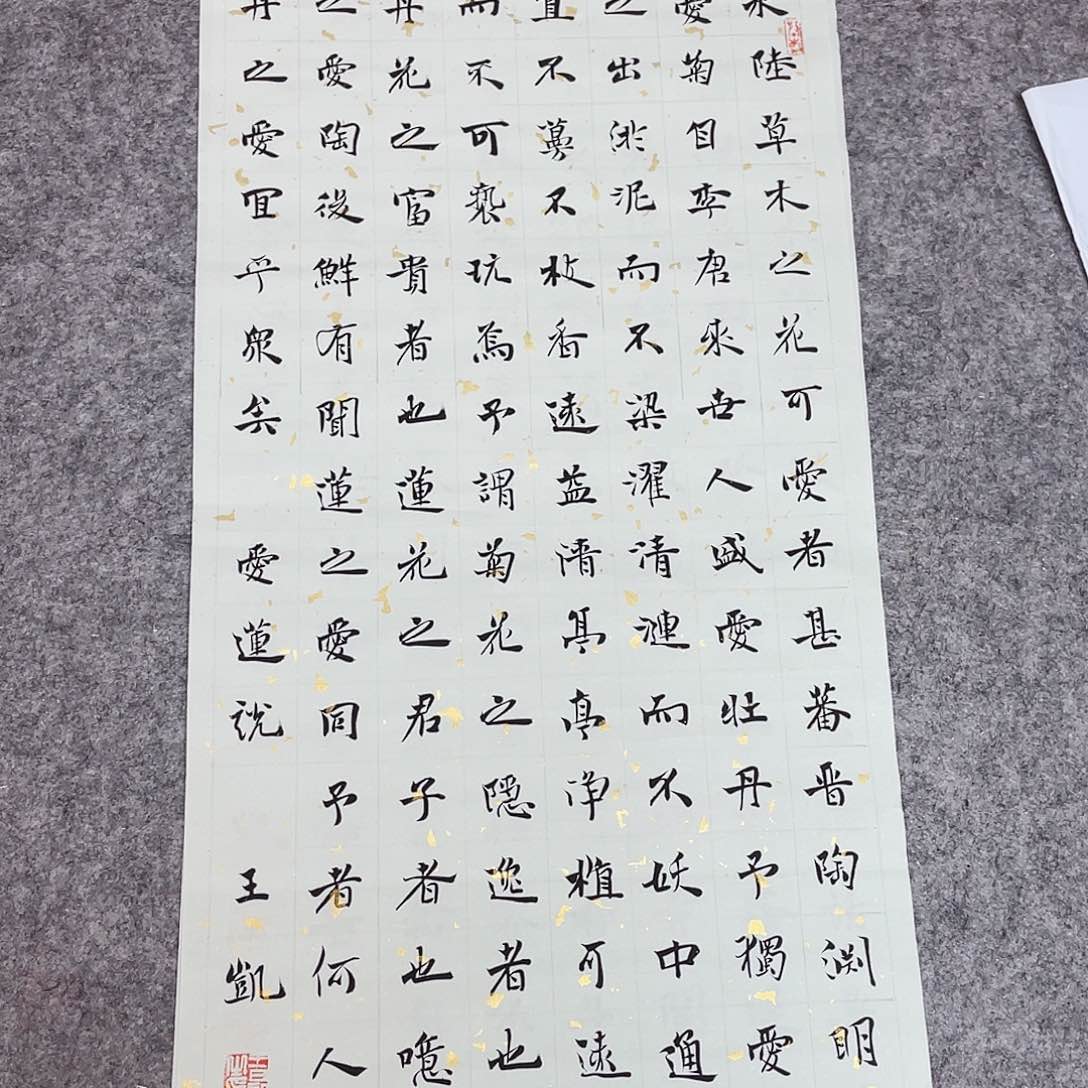 水陸草木之花可愛者甚蕃晋陶渊明
愛菊自李唐來世人盛愛牡丹予獨愛
之出淤泥而不染濯清漣而不妖中通
直不蔓不枝香遠益清亭亭净植可遠
而不可褻玩焉予謂菊花之隱逸者也
丹花之富貴者也蓮花之君子者也噫
之愛陶後鮮有聞蓮之愛同予者何人
丹之愛宜乎衆矣 愛蓮説 王凱